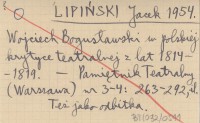 LIPIŃSKI Jacek 1954.
Wojciech Bogusławski w polskiej
krytyce teatralnej z lat 1814-
-1819. — Pamiętnik Teatralny
(Warszawa) nr 3-4: 263-292, il.
Też jako odbitka.